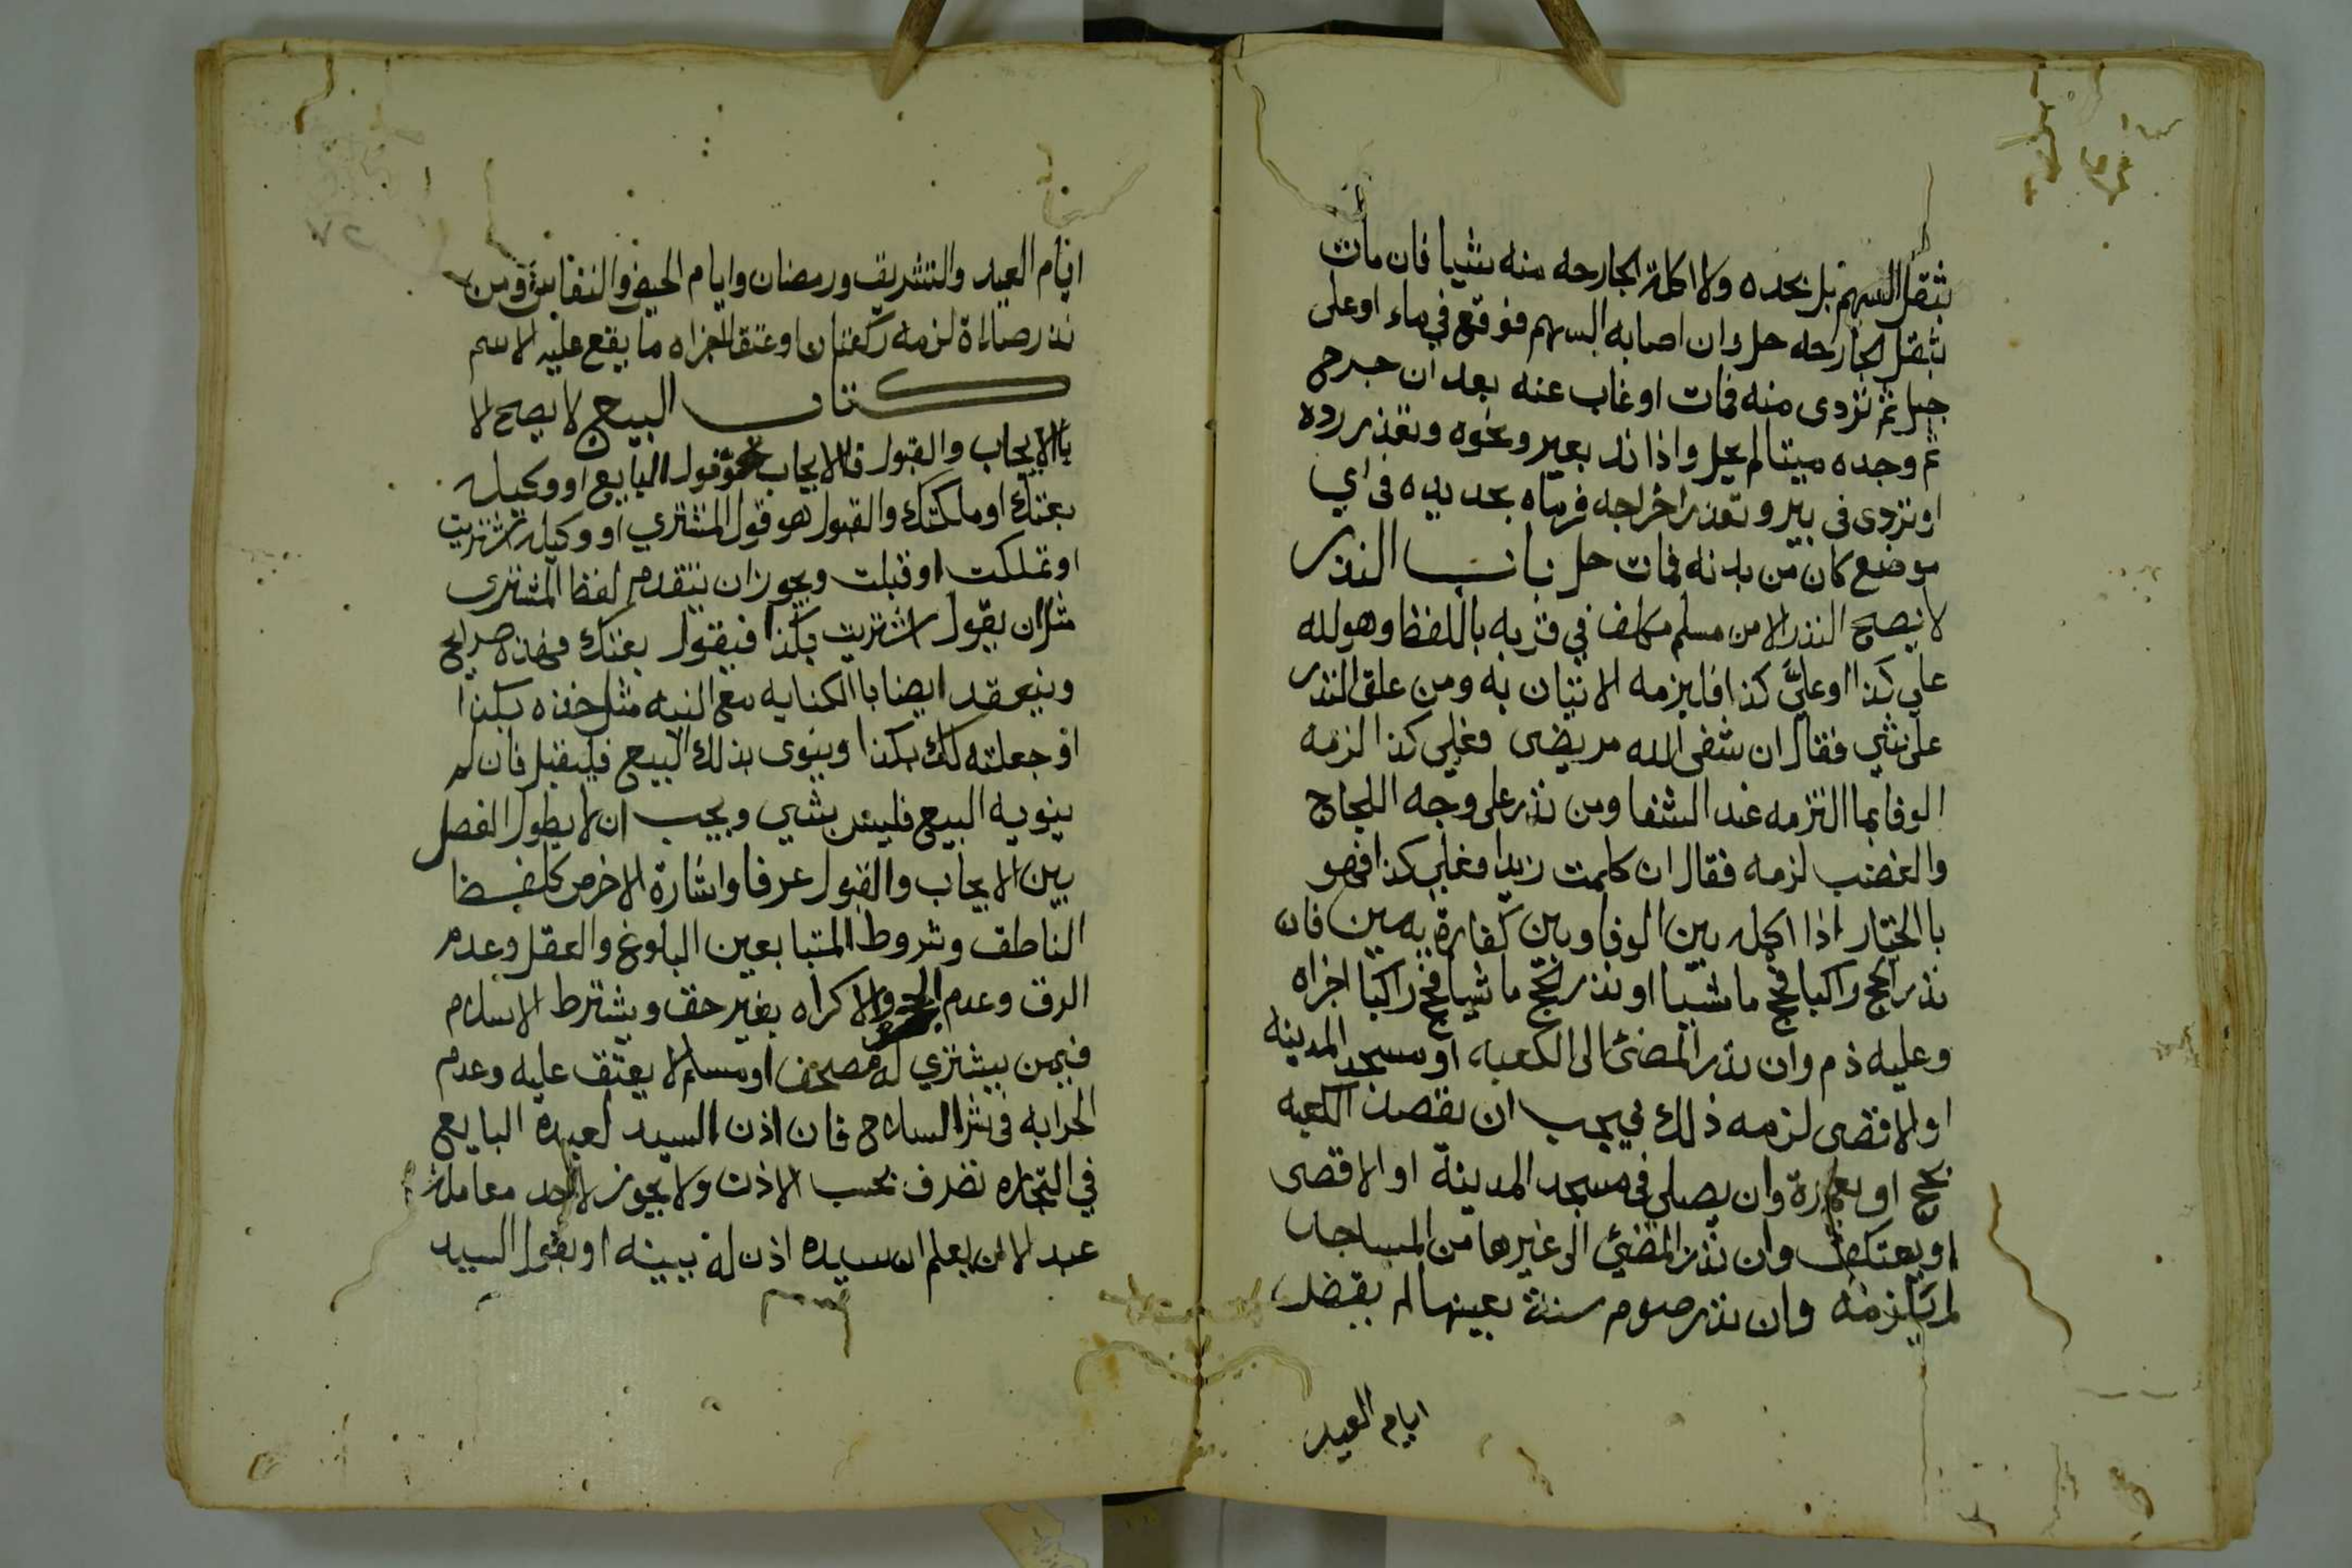 بثقل السهم بل بحده ولا اكلة الجارحه منه شيا فان مات
بثقل الجارحه حل وان اصابه السهم فوقع في ماء او على
جبل ثم تزدى منه فمات او غاب عنه بعد ان جرح
ثم وجده ميتا لم يحل واذا ند بعير ونحوه وتعذر رده
او تردى في بير وتعذر اخراجه فرماه بحديده في اي
موضع كان من بدنه فمات حل باب النذر
لا يصح النذر الا من مسلم مكلف في قربه باللفظ وهو لله
علي كذا او عليَّ كذا فليزمه الاتيان به ومن علق النذر
على شي فقال ان شفى الله مريضى فعلي كذا لزمه
الوفا بما التزمه عند الشفا ومن نذر على وجه اللجاج
والغضب لزمه فقال ان كلمت زيدا فعلي كذا فهو
با الخيار اذا اكله بين الوفا وبين كفارة يمين فان
نذر الحج راكبا فحج ماشيا او نذر الحج ماشيا فحج راكبا اجزاه
وعليه دم وان نذر المضى الى الكعبه او مسجد المدينه
او الاقصى لزمه ذلك فيجب ان يقصد الكعبه
بحج او بعمرة وان يصلي في مسجد المدينة او الاقصى
او يعتكف وان نذر المضي الى غيرها من المساجد
لم يلزمه وان نذر صوم سنة بعينها لم يقض
ايام العيد
ايام العيد والتشريق ورمضان وايام الحيض والنفاس ومن
نذر صلاة لزمه ركعتان او عتقا اجزاه ما يقع عليه الاسم
كتاب البيع لا يصح الا
با الايجاب والقبول فالايجاب هو قول البايع او وكيله
بعتك او ملكتك والقبول هو قول المشتري او وكيله اشتريت
او تملكت او قبلت ويجوز ان يتقدم لفظ المشترى
مثل ان يقول اشتريت بكذا فيقول بعتك فهذه صرايح
وينعقد ايضا با الكنايه مع النيه مثل خذه بكذا
او جعلته لك بكذا وينوى بذلك البيع فليقبل فان لم
ينويه البيع فليس بشي ويجب ان لا يطول الفصل
بين الايجاب والقبول عرفا واشارة الاخرص كلفضا
الناطف وشروط المتبايعين البلوغ والعقل وعدم
الرق وعدم الحجر والاكراه بغير حق ويشترط الاسلام
فيمن يشتري له مصحف او مسلم لا يعتق عليه وعدم
الحرابه في شرا السلاح فان اذن السيد لعبده البايع
في التجاره تصرف بحسب الاذن ولا يجوز لاحد معاملة
عبد الا ان يعلم ان سيده اذن له ببينه او بقول السيد